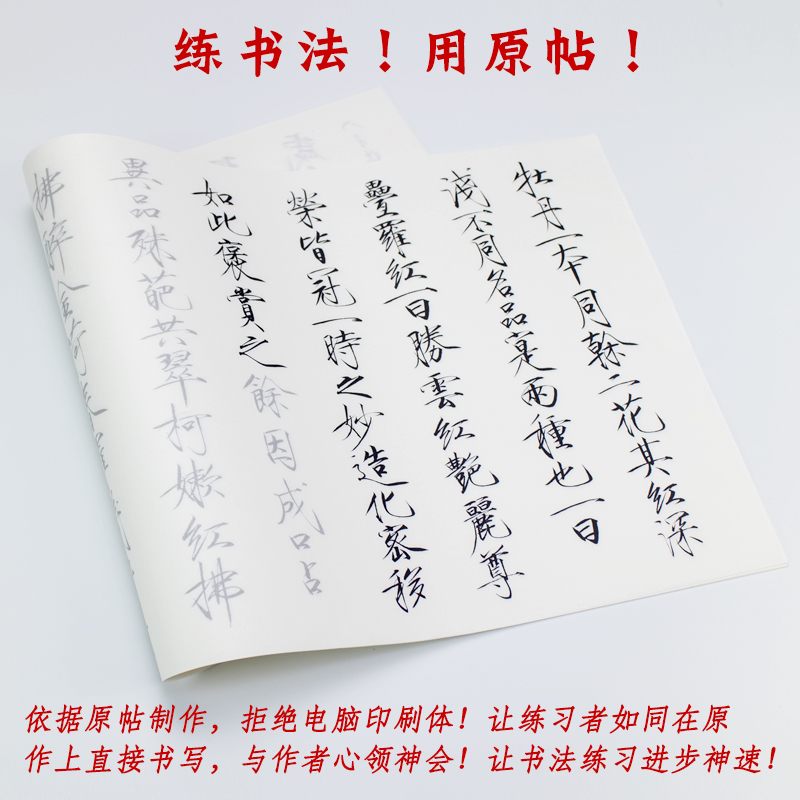 练书法！用原帖！
牡丹一本同幹二花其紅深
淺不同名品寔兩種也一曰
疊羅紅一曰勝雲紅艷麗尊
榮皆冠一時之妙造化密移
如此褒賞之餘因成口占
異品殊葩共翠柯嫩紅拂
拂醉金荷
依据原帖制作，拒绝电脑印刷体！让练习者如同在原
作上直接书写，与作者心领神会！让书法练习进步神速！